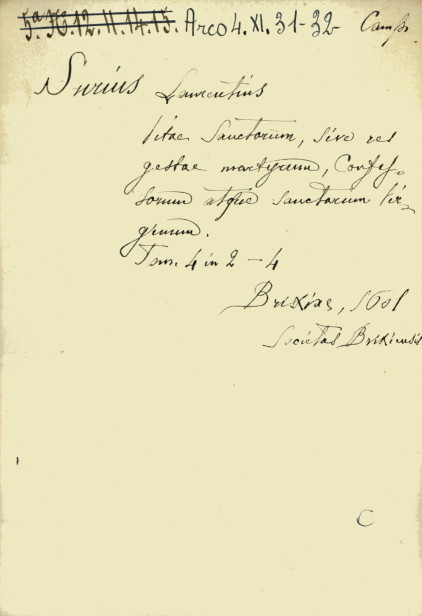 5ª.H.12.11.14.15. Arco 4. XI. 31-32
Surius Laurentius
Vitae Sanctorum, sive res
gestae martyrum, Confes-
sorum atque sanctarum Vir-
ginum.
Tom. 4 in 2 - 4
Brixiae, 1601
Societas Brixiensis
C